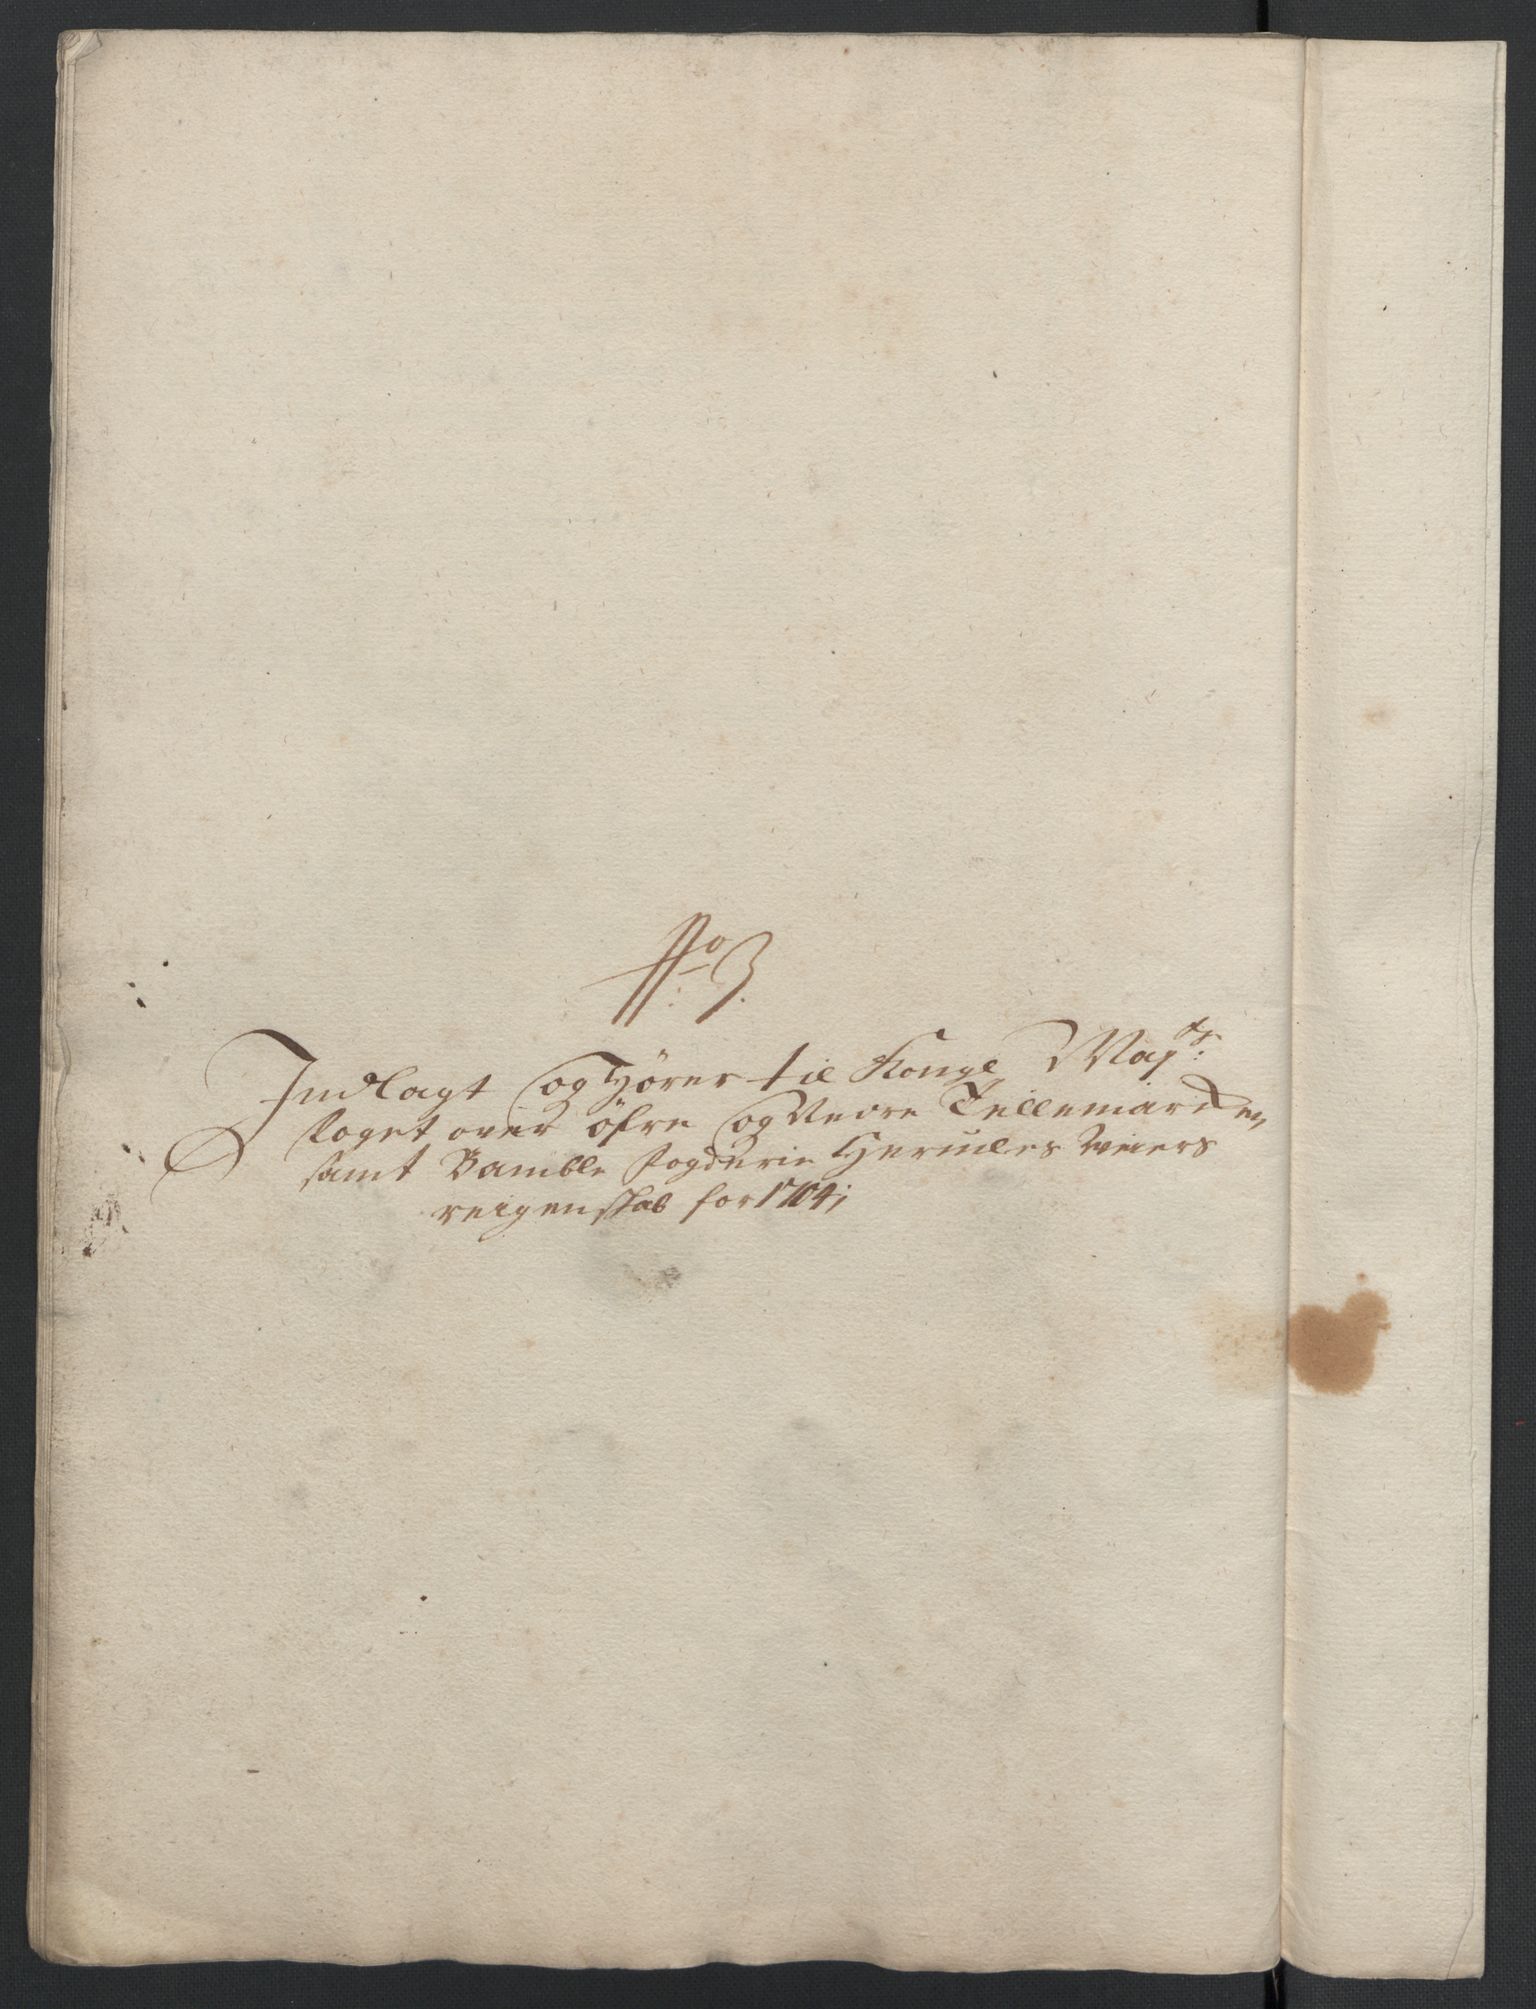 No 3.
Indlagt og Hører til Kongl Mayts:
foget over öfre og Nedre Tellemarcken,
samt Bamble fogderie Hercules Weiers
reigenskab for 1704;